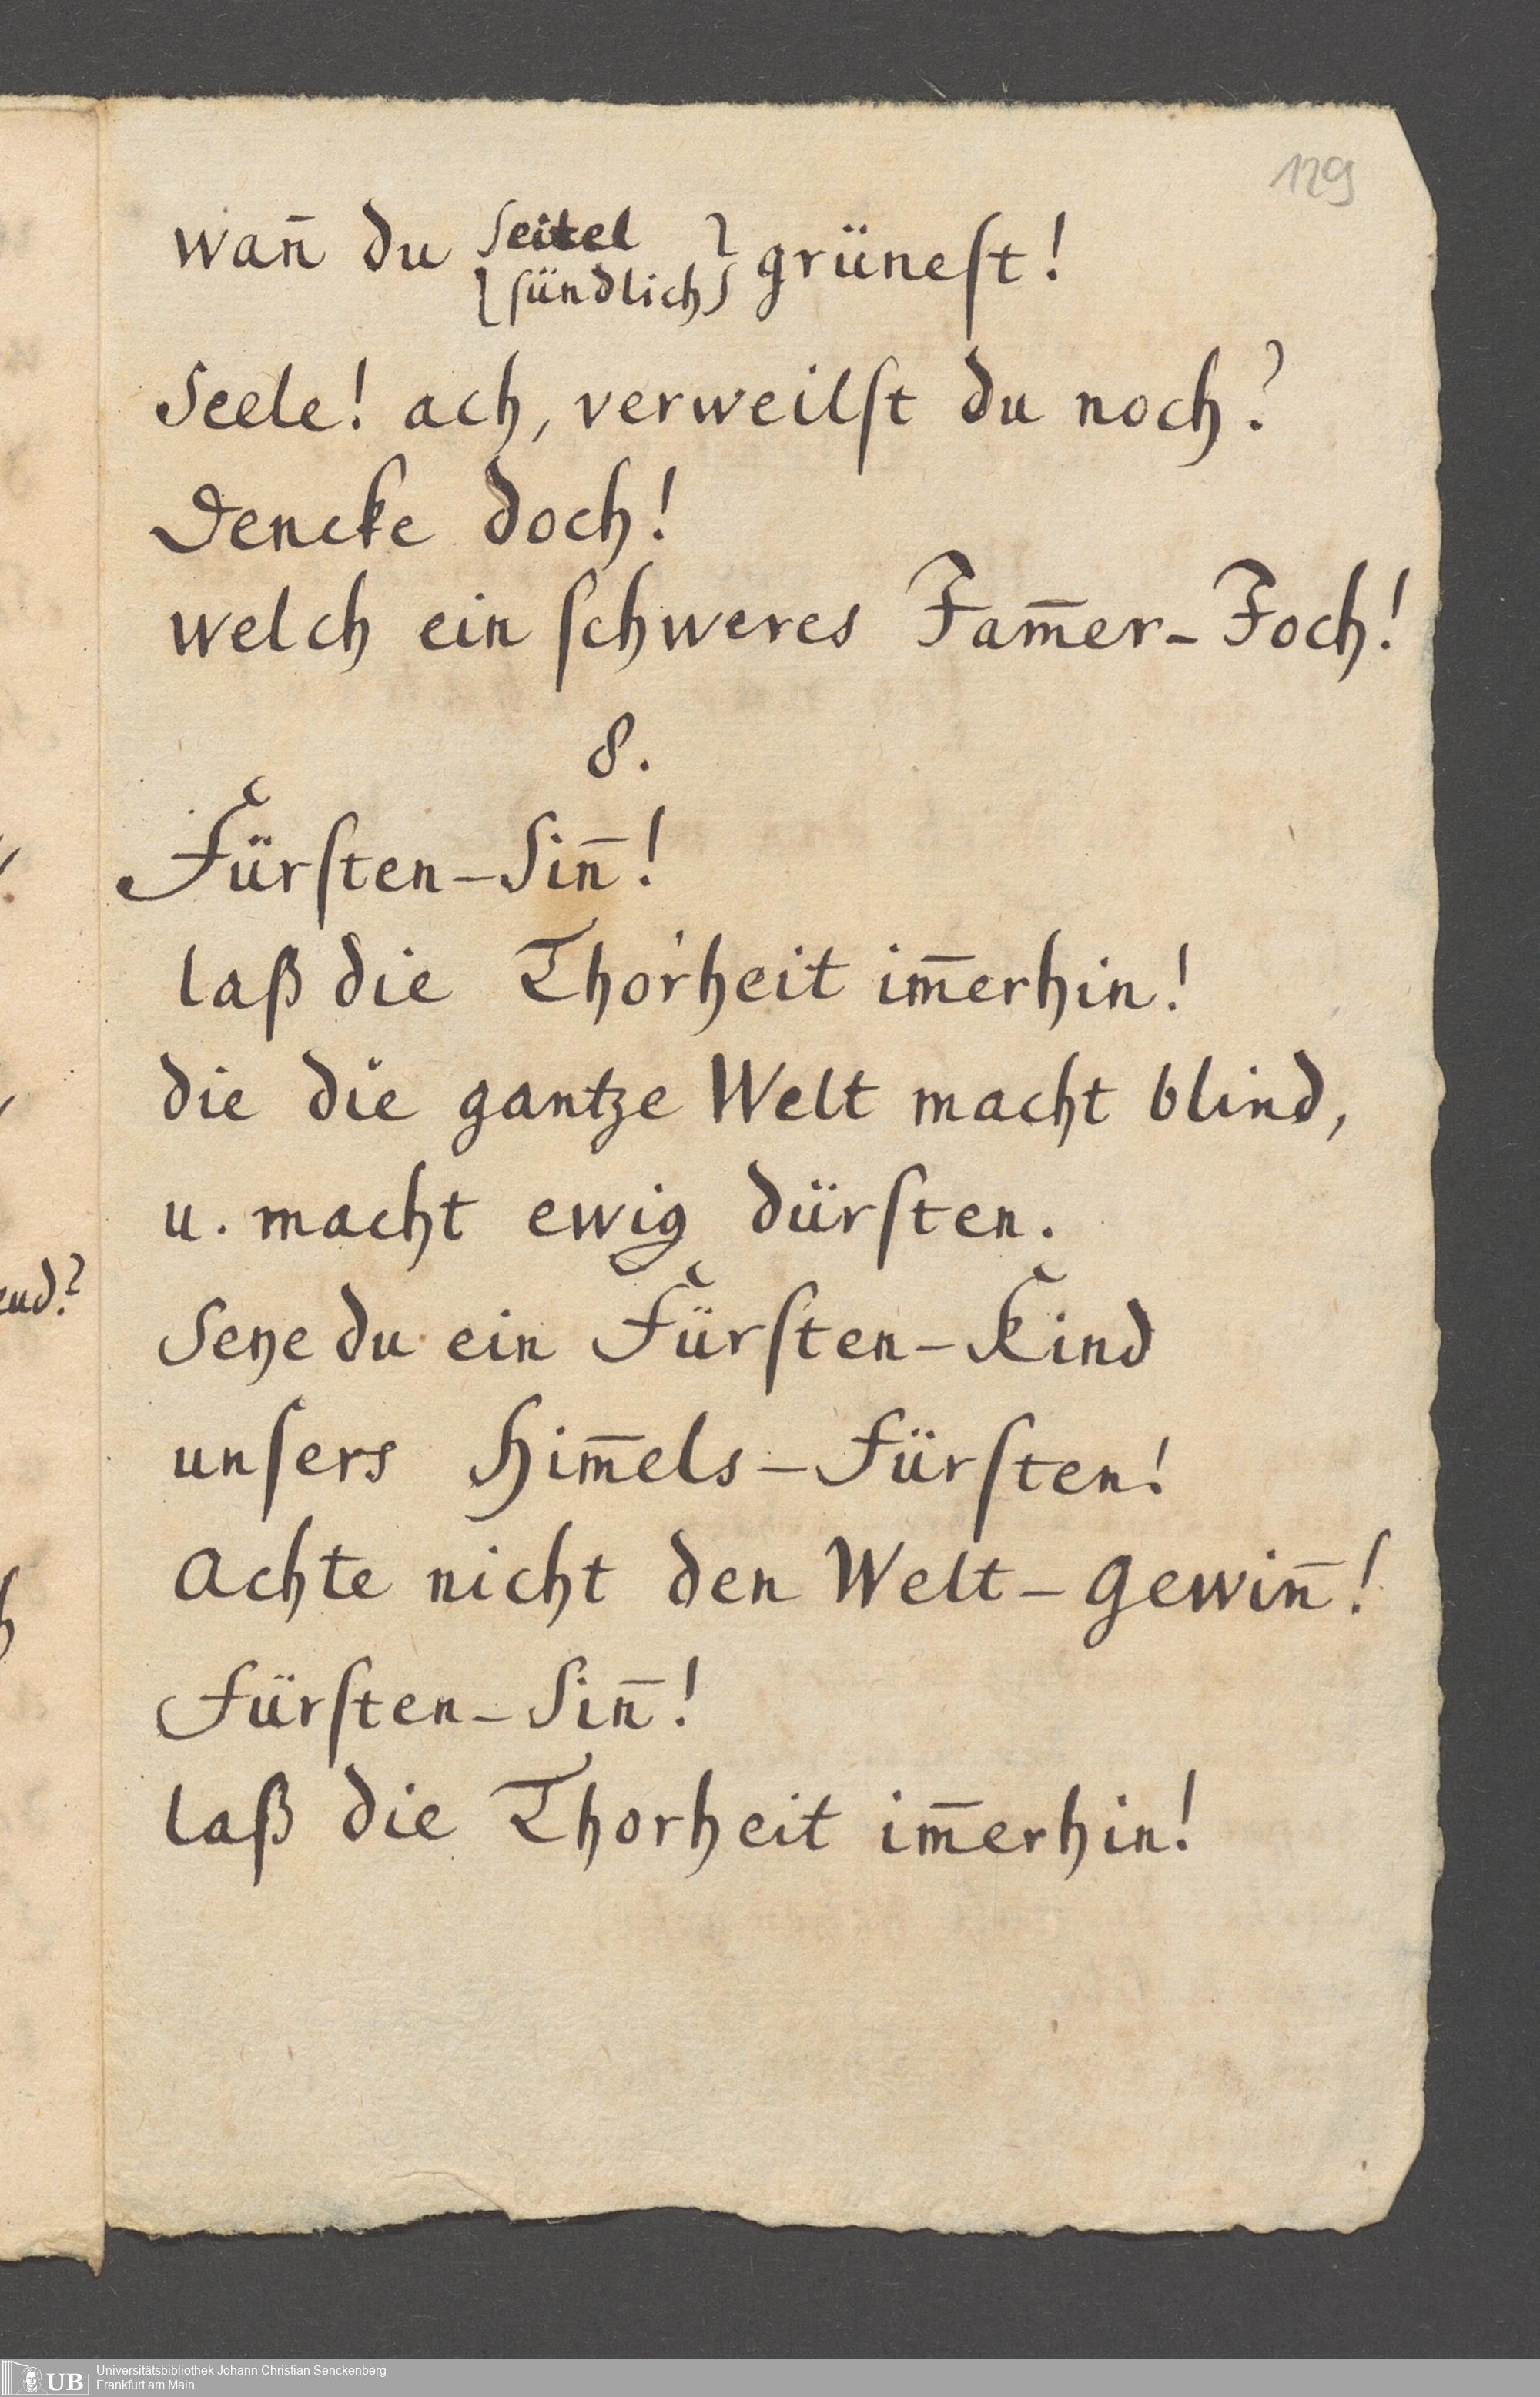 129
wañ du {eitel
{sündlich} grünest!
Seele! ach, verweilst du noch?
Dencke doch!
welch ein schweres Jam̄er-Joch!
8.
Fürsten-Siñ!
laß die Thorheit im̄erhin!
die die gantze Welt macht blind,
u. macht ewig dürsten.
Seye du ein Fürsten-Kind
unsers Him̄els-Fürsten!
Achte nicht den Welt-Gewiñ!
Fürsten-Siñ!
laß die Thorheit im̄erhin!
UB
Universitätsbibliothek Johann Christian Senckenberg
Frankfurt am Main